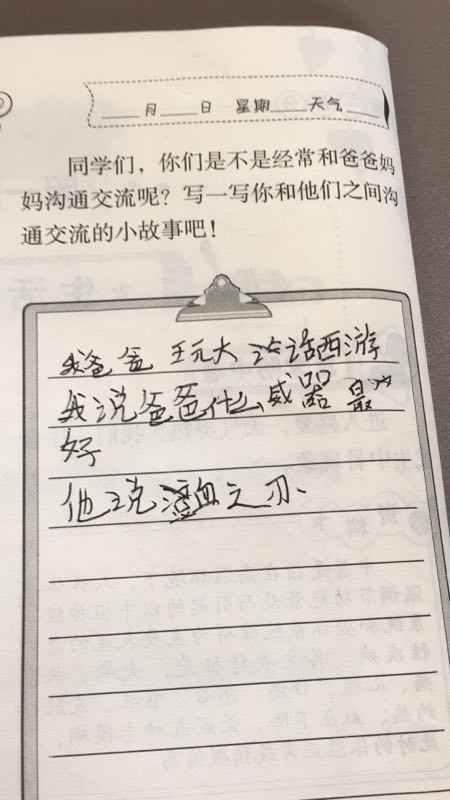 ____月____日 星期____天气____
同学们，你们是不是经常和爸爸妈
妈沟通交流呢？写一写你和他们之间沟
通交流的小故事吧！
我爸爸 玩大 话西游
我说爸爸什么威器 最
好
他说 血之刃、